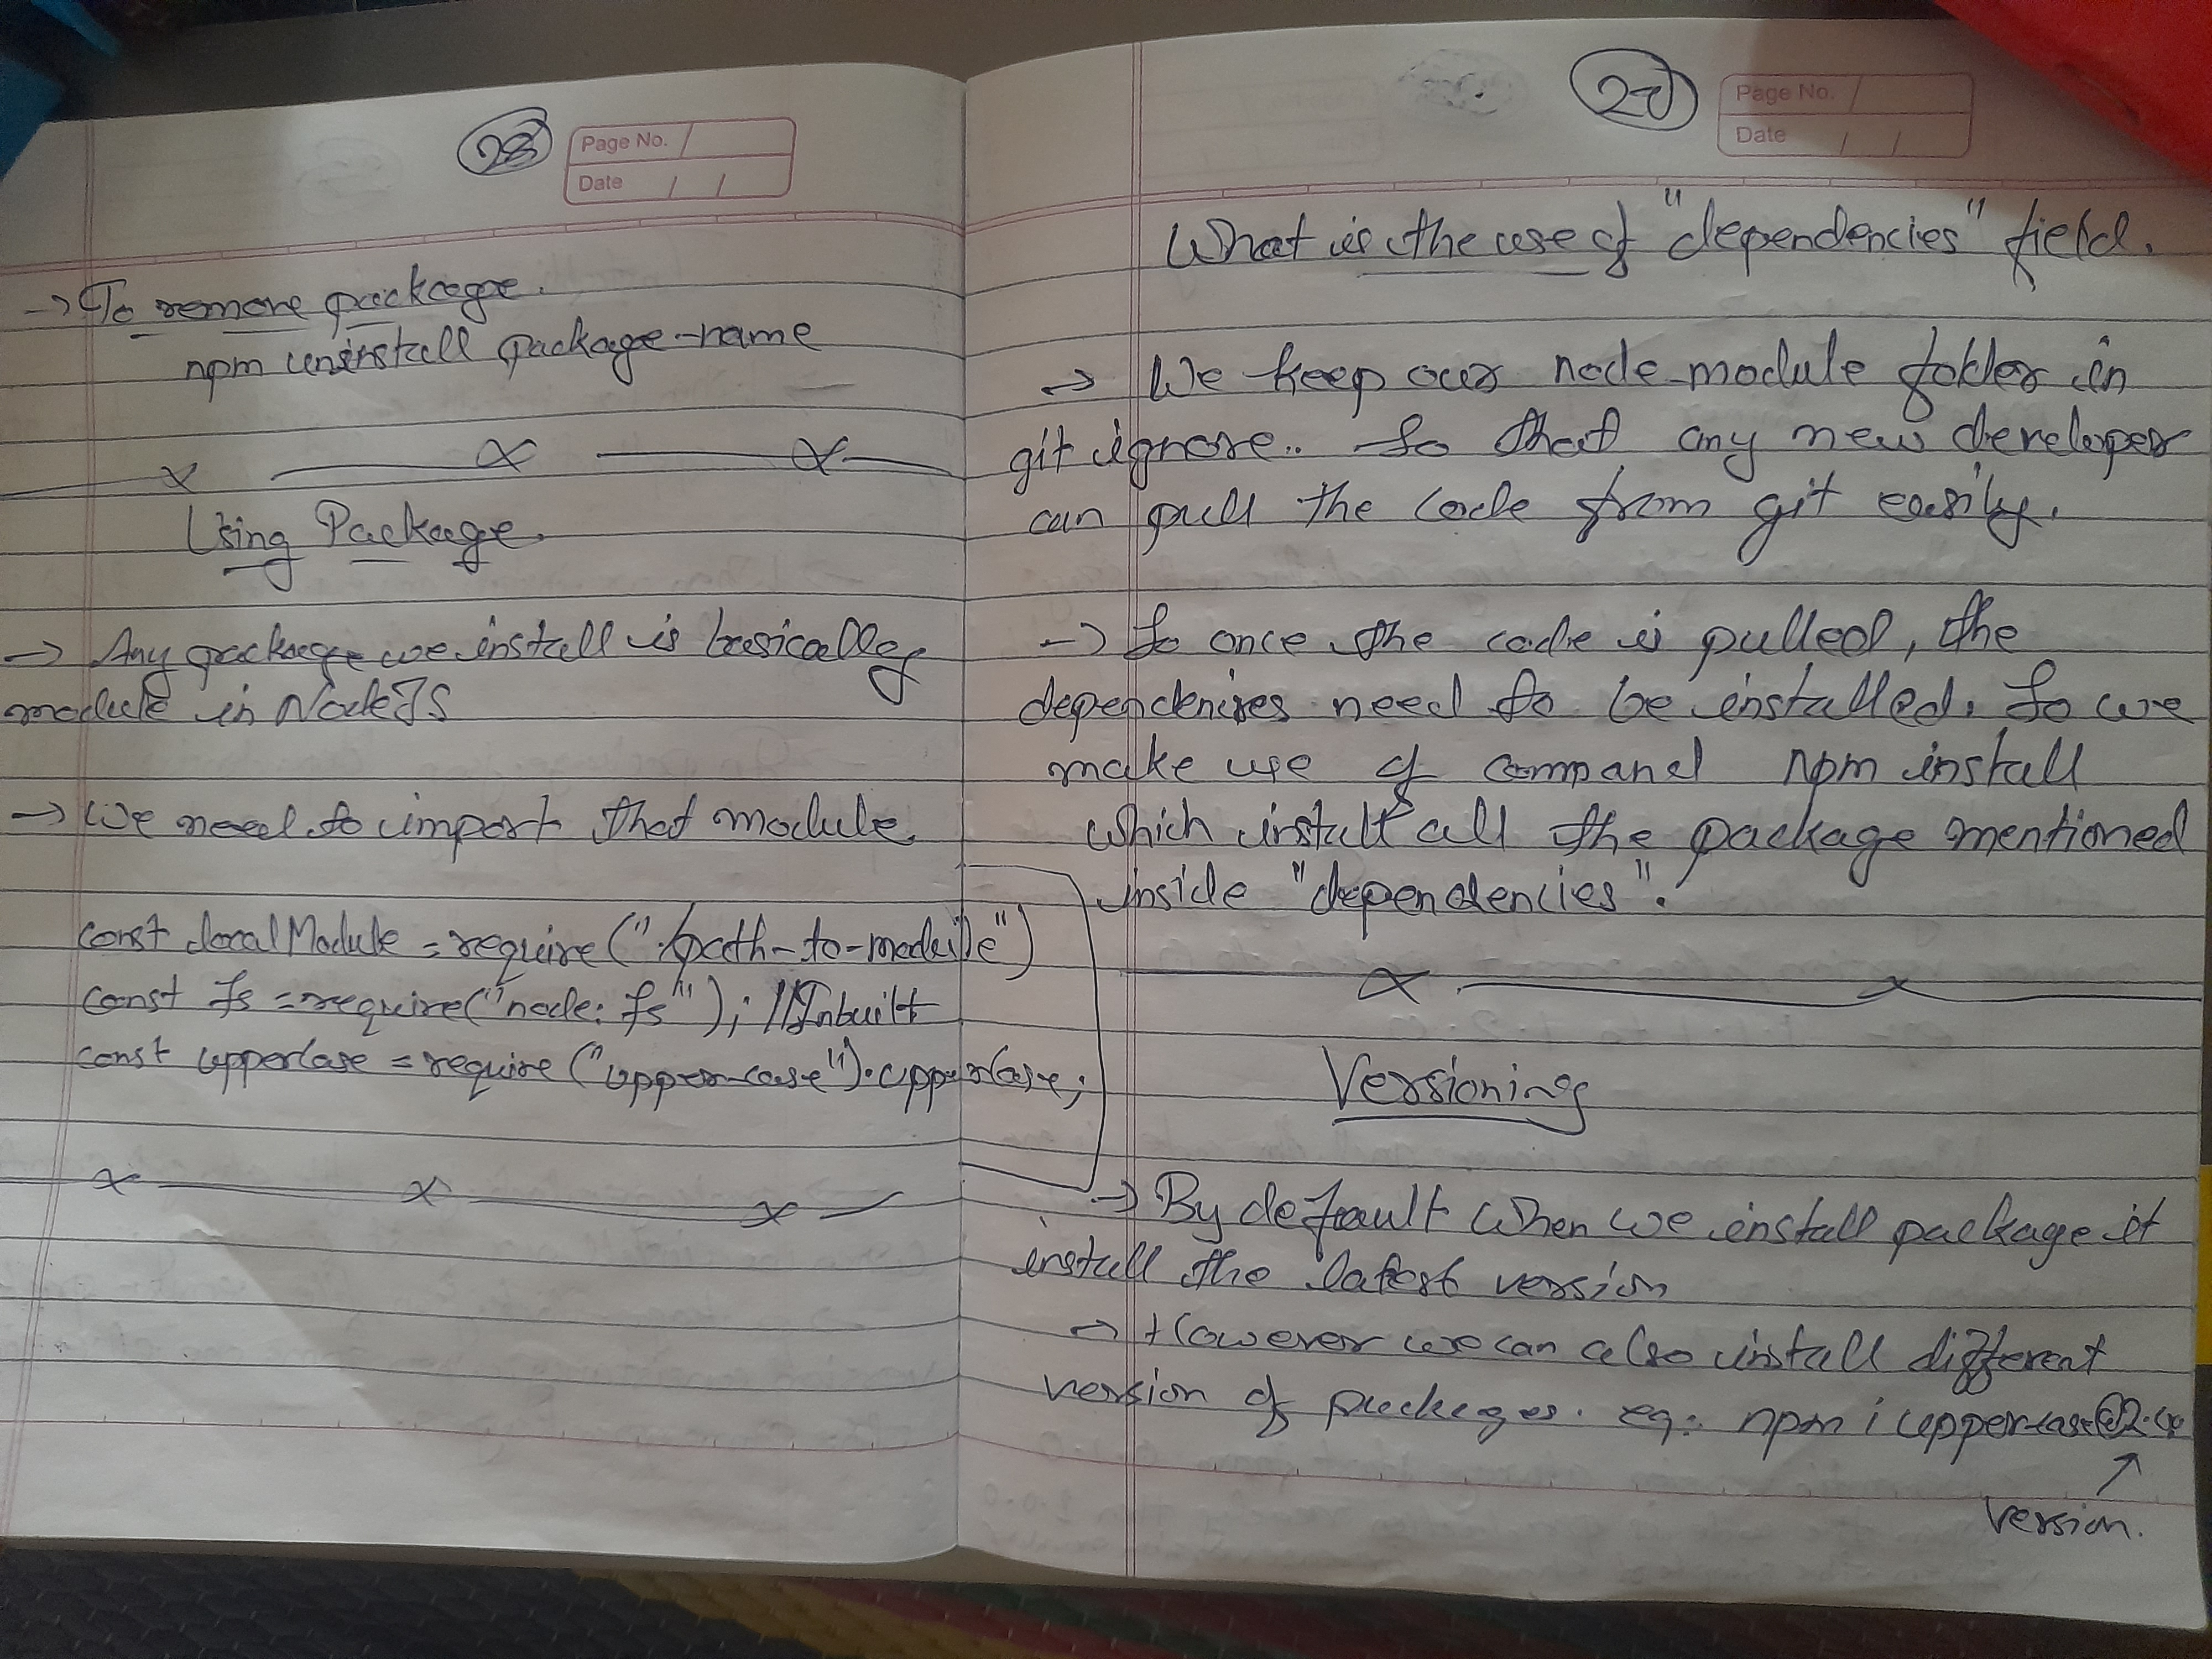 28
Page No.
Date
→ To remove package.
npm uninstall package-name
Using Package.
→ Any package we install is basically
module in NodeJS
→ We need to import that module.
const localModule = require("./path-to-module")
const fs = require("node:fs"); //Inbuilt
const upperCase = require("upper-case").upperCase;
Page No.
Date
What is the use of "dependencies" field.
→ We keep our node-module folder in
git ignore.. So that any new developer
can pull the code from git easily.
→ So once the code is pulled, the
dependenises need to be installed. So we
make use of command npm install
which installs all the package mentioned
inside "dependencies".
Versioning
→ By default when we install package it
install the latest version
→ However we can also install different
version of packages. eg:. npm i upper-case@2.
version.